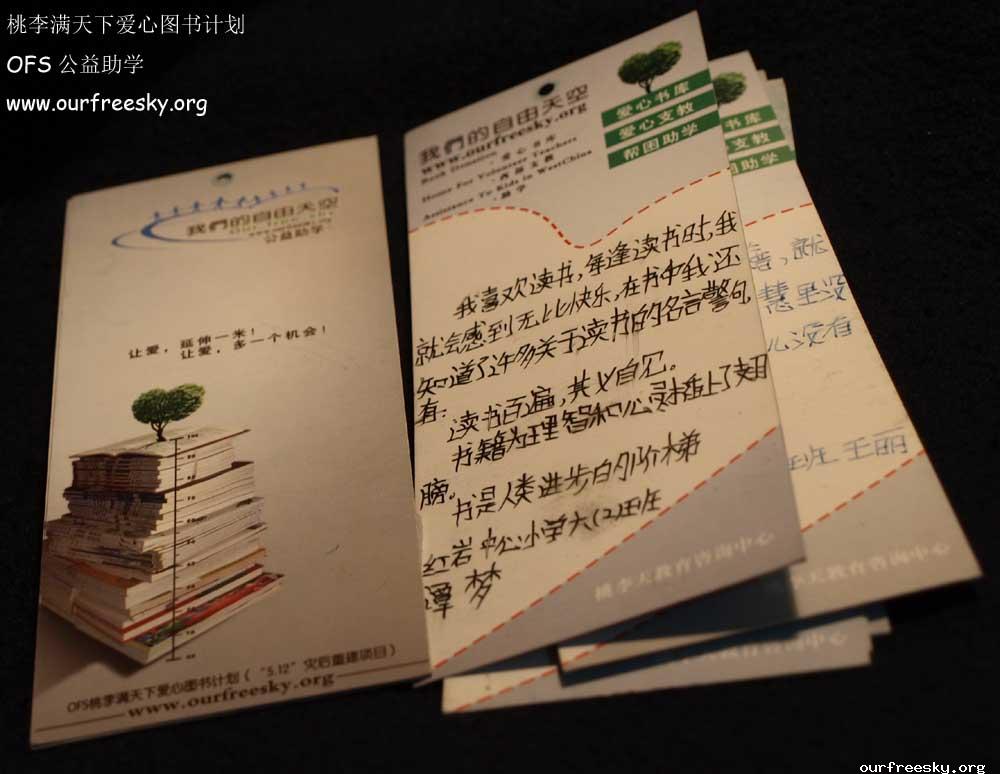 桃李满天下爱心图书计划
OFS 公益助学
www.ourfreesky.org
我們的自由天空
公益助学
让爱，延伸一米！
让爱，多一个机会！
OFS桃李满天下爱心图书计划（“5.12”灾后重建项目）
www.ourfreesky.org
我們的自由天空
www.ourfreesky.org
Book Donation
·爱心书库
Home For Volunteer Teachers
·西部支教
Assistance To Kids in WestChina
·助学
爱心书库
爱心支教
帮困助学
我喜欢读书，每逢读书时，我
就会感到无比快乐，在书中我还
知道了许多关于读书的名言警句
有：
读书百遍，其义自见。
书籍为理智和心灵插上了翅
膀。
书是人类进步的阶梯
红岩中心小学六(2)班
谭梦
桃李天教育咨询中心
书库
支教
困助学
，就
慧里没
儿没有
班王丽
李天教育咨询中心
教育咨询中心
ourfreesky.org